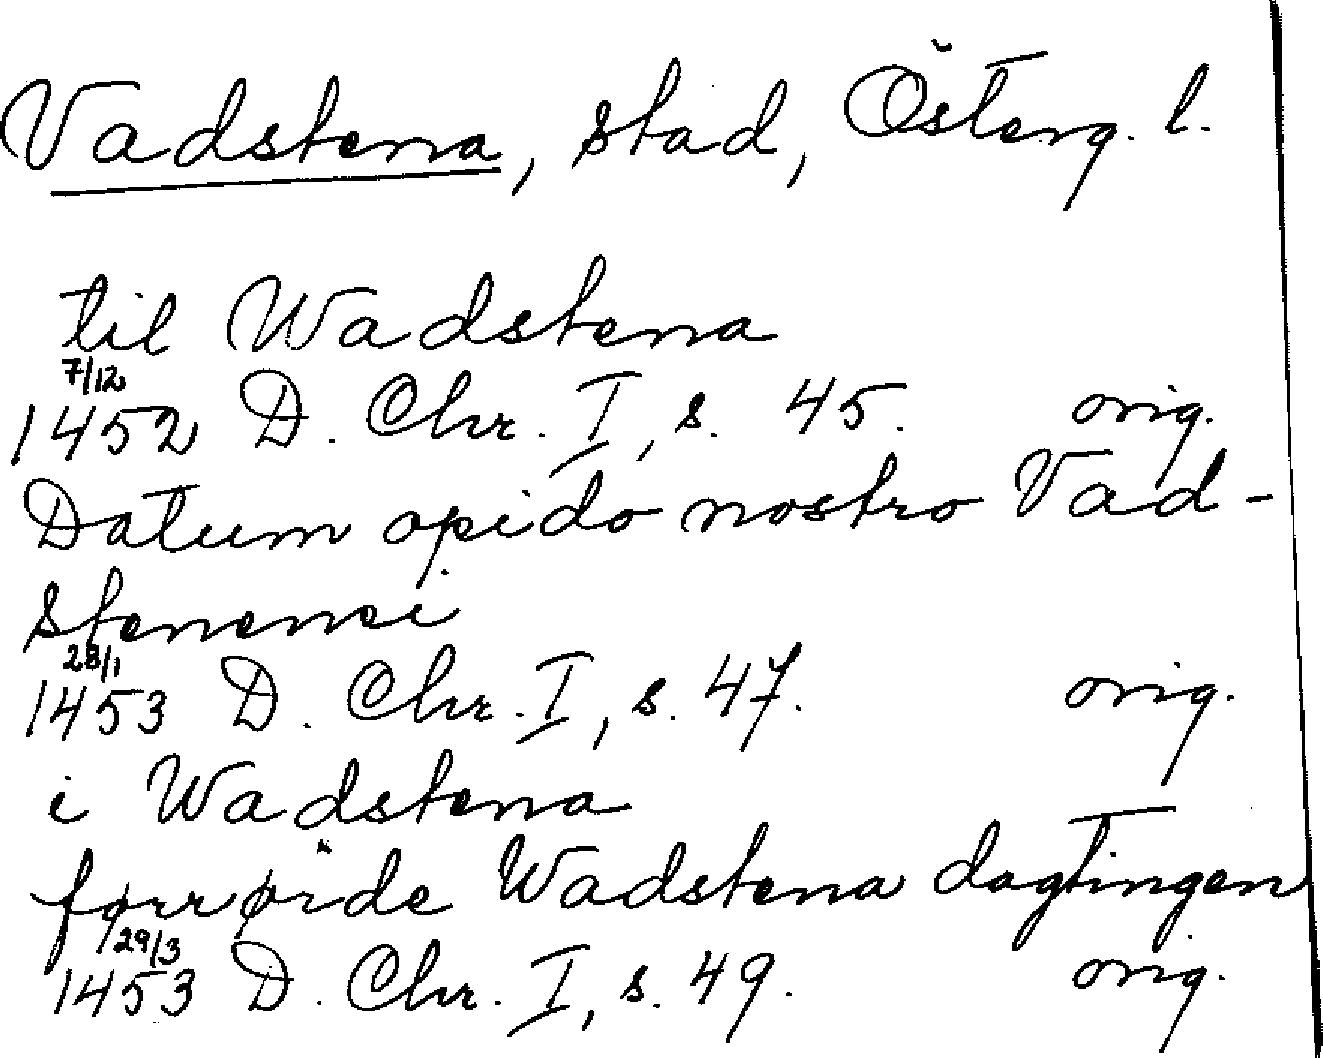 Vadstena, stad, Österg. l.
til Wadstena
7/12
1452 D. Chr. I, s. 45. orig.
Datum opido nostro Vad-
stenensi
28/1
1453 D. Chr. I, s. 47. orig.
i Wadstena
Wadstena dagtingen
29/3
1453 D. Chr. I, s. 49. orig.